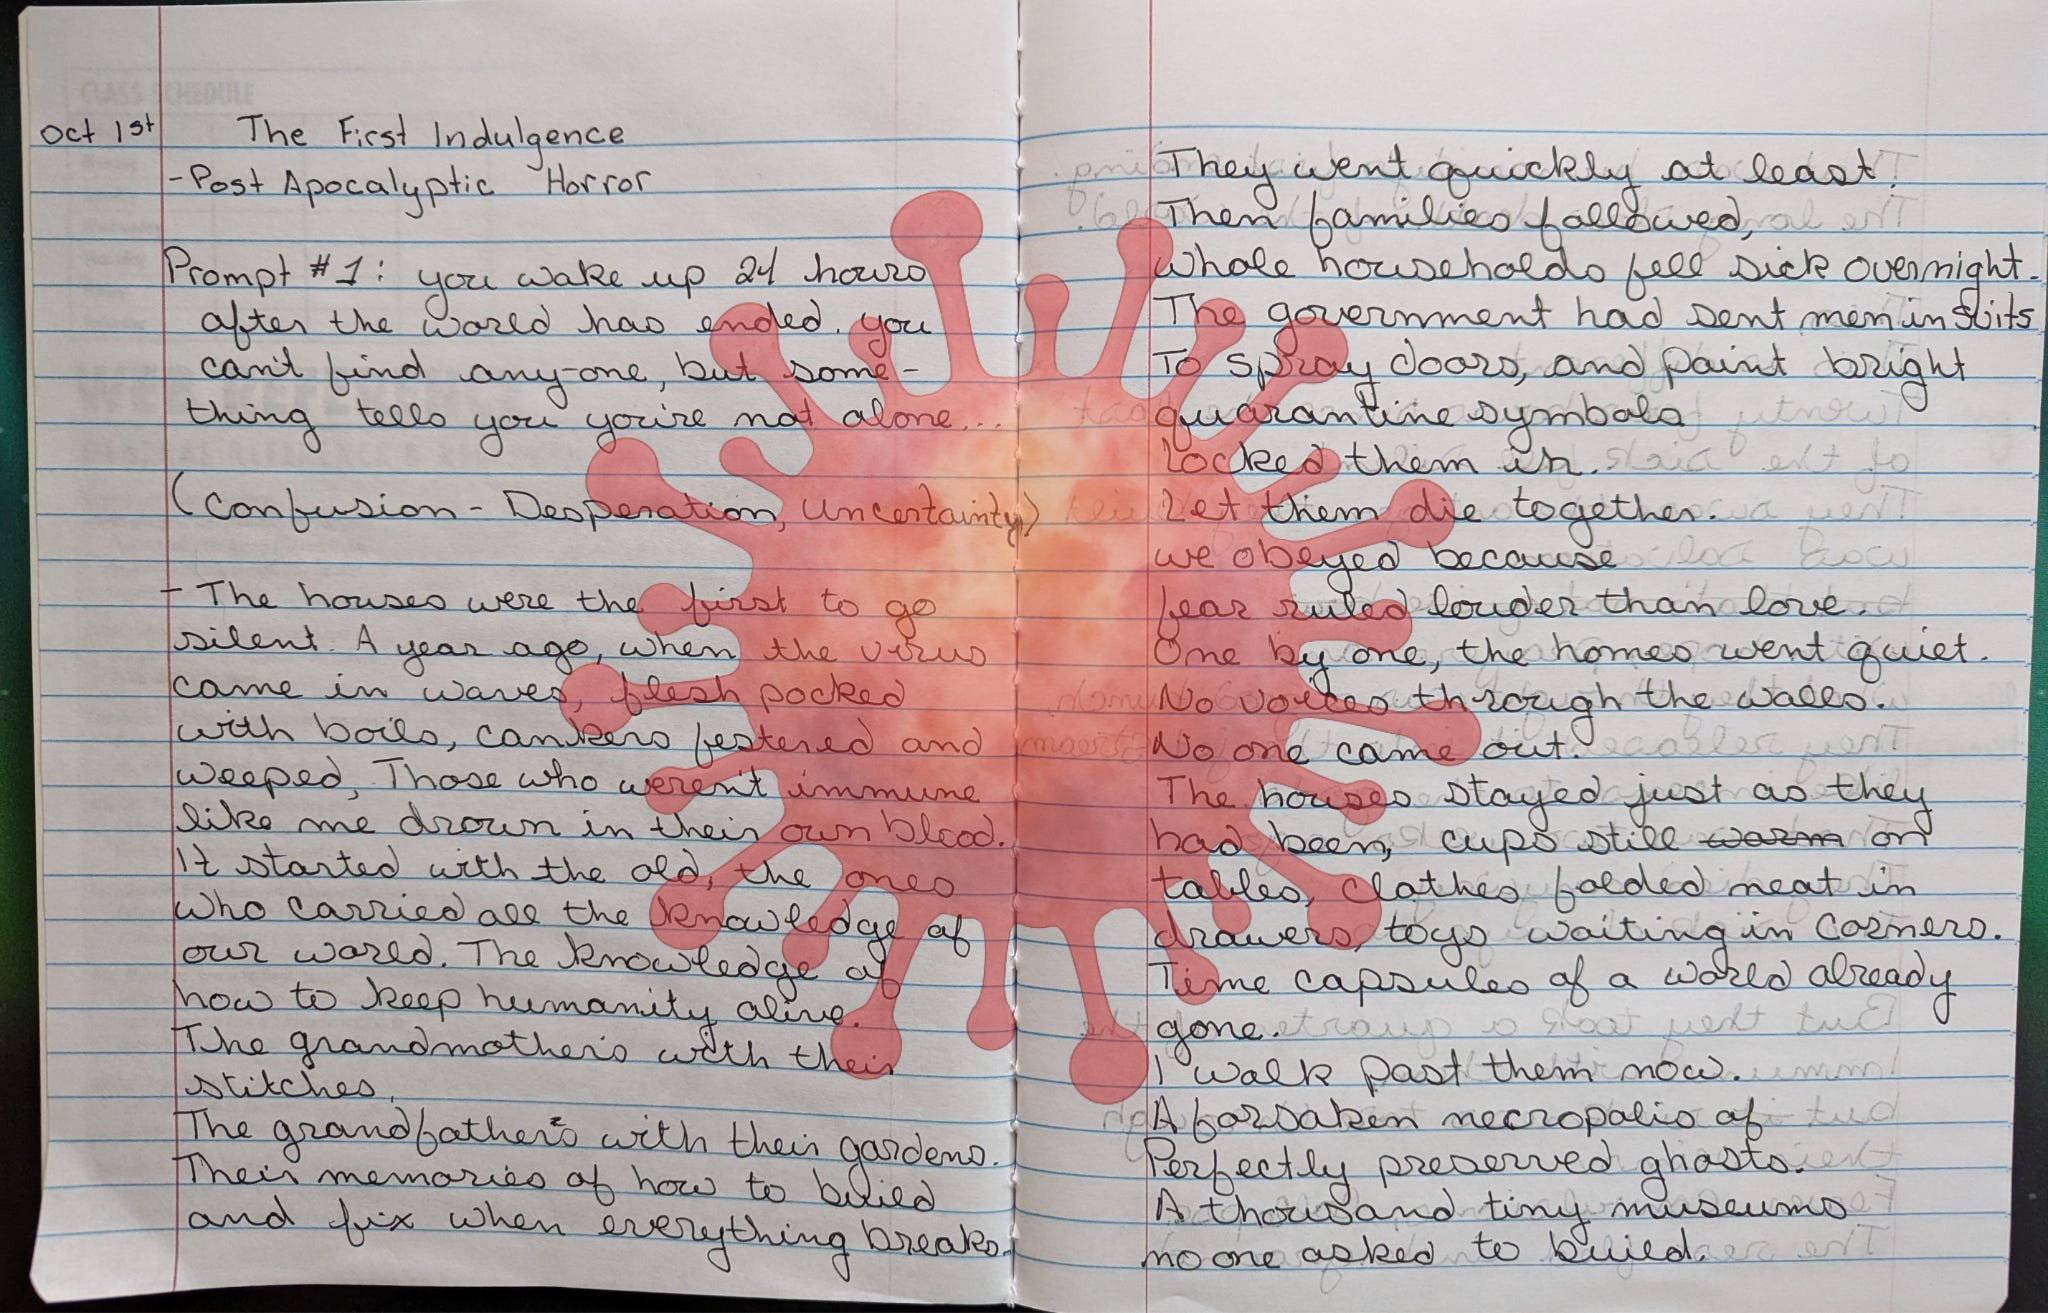 CLASS SCHEDULE
Oct 1st The First Indulgence
- Post Apocalyptic Horror
Prompt #1: you wake up 24 hours
after the world has ended. you
can't find any-one, but some-
thing tells you you're not alone...
(Confusion - Desperation, Uncertainty)
- The houses were the first to go
silent. A year ago, when the virus
came in waves, flesh pocked
with boils, cankers festered and
weeped, Those who weren't immune
like me drown in their own blood.
It started with the old, the ones
who carried all the knowledge of
our world. The knowledge of
how to keep humanity alive.
The grandmothers with their
stitches,
The grandfathers with their gardens.
Their memories of how to build
and fix when everything breaks.
They went quickly at least.
Then families followed,
Whole households fell sick overnight.
The government had sent men in suits
To spray doors, and paint bright
quarantine symbols
Locked them in.
Let them die together.
we obeyed because
fear ruled louder than love.
One by one, the homes went quiet.
No voices through the walls.
No one came out.
The houses stayed just as they
had been, cups still warm on
tables, clothes folded neat in
drawers, toys waiting in corners.
Time capsules of a world already
gone.
I walk past them now.
A forsaken necropolis of
Perfectly preserved ghosts.
A thousand tiny museums
no one asked to build.